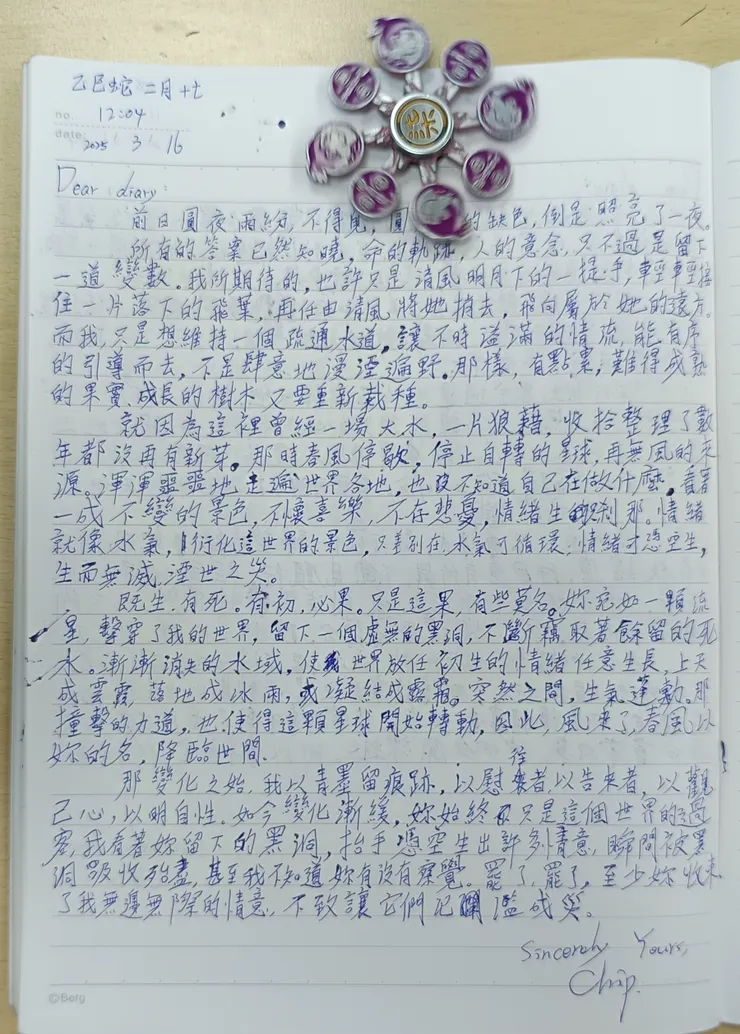 乙巳蛇 二月十七
no. 12:04
date: 2025 3 16
Dear diary:
前日圓夜雨紛,不得見,圓 的缺色,倒是照亮了一夜。
所有的答案已然知曉,命的軌跡,人的意念,只不過是留下
一道變數。我所期待的,也許只是清風明月下的一提手,輕輕接
住一片落下的飛葉,再任由清風將她捎去,飛向屬於她的遠方。
而我,只是想維持一個疏通水道,讓不時溢滿的情流,能有序
的引導而去,不是肆意地漫湮遍野。那樣,有點累,難得成熟
的果實、成長的樹木又要重新栽種。
就因為這裡曾經一場大水,一片狼藉,收拾整理了數
年都沒再有新芽。那時春風停歇,停止自轉的星球,再無風的來
源。渾渾噩噩地走遍世界各地,也不知道自己在做什麼,看著
一成不變的景色,不懷喜樂,不存悲憂,情緒生的剎那。情緒
就像水氣,衍化這世界的景色,只差別在,水氣可循環,情緒可憑空生,
生而無滅,湮世之災。
既生,有死。有初,必果。只是這果,有些莫名。妳宛如一顆流
星,擊穿了我的世界,留下一個虛無的黑洞,不斷竊取著餘留的死
水。漸漸消失的水域,使世界放任初生的情緒任意生長,上天
成雲霞,落地成冰雨,或凝結成露霜。突然之間,生氣蓬勃。那
撞擊的力道,也使得這顆星球開始轉動,因此,風來了,春風以
妳的名,降臨世間。
那變化之始,我以青墨留痕跡,以慰往者,以告來者,以觀
己心,以明自性。如今變化漸緩,妳始終只是這個世界的過
客,我看著妳留下的黑洞,抬手憑空生出許多情意,瞬間被黑
洞吸收殆盡,甚至我不知道妳有沒有察覺。罷了,罷了,至少妳收來
了我無邊無際的情意,不致讓它們氾濫成災。
Sincerely Yours,
Chip.
©Berg